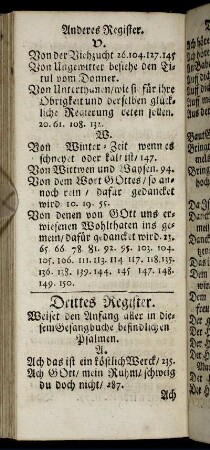 Anderes Register.
V.
Von der Viehzucht 26.104.127.145
Von Ungewitter besiehe den Ti-
tul vom Donner.
Von Unterthanen/ wie si für ihre
Obrigkeit und derselben glück-
liche Regierung beten sollen.
20. 61. 108. 132.
W.
Von Winter-Zeit wenn es
schneyet oder kalt ist/ 147.
Von Wittwen und Waysen. 94.
Von dem Wort Gottes/ so an-
noch rein/ dafür gedancket
wird 10. 19. 55.
Von denen von GOtt uns er-
wiesenen Wohlthaten ins ge-
mein/ dafür gedancket wird. 23.
65. 66. 78. 81. 92. 95. 103. 104.
105. 106. 111. 113. 114. 117. 118. 135.
136. 138. 139. 144. 145. 147. 148.
149. 150.
Drittes Register.
Weiset den Anfang aller in die-
sem Gesangbuche befindlichen
Psalmen.
A.
Ach das ist ein köstlich Werck/ 235.
Ach GOtt/ mein Ruhm/ schweig
du doch nicht/ 287.
Ach